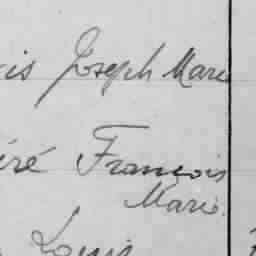 is Joseph Marie
ré François
Marie
Louis